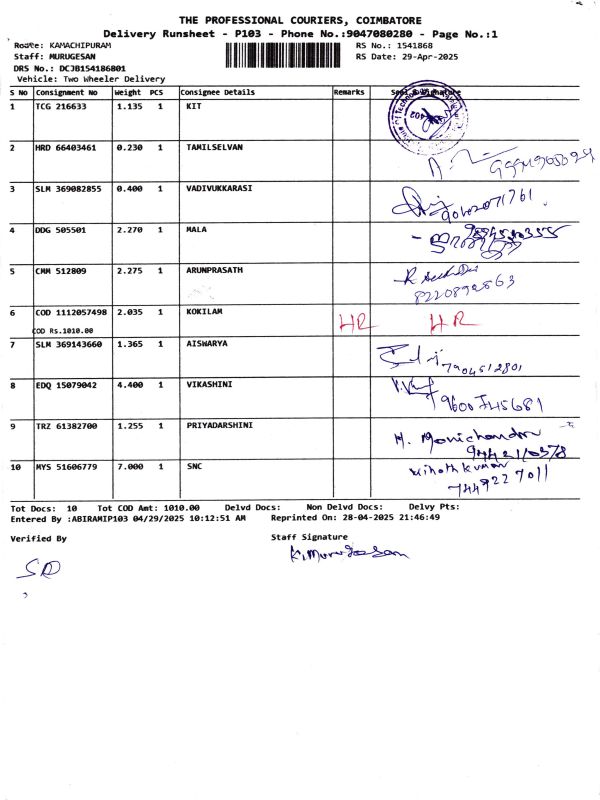 THE PROFESSIONAL COURIERS, COIMBATORE
Delivery Runsheet - P103 - Phone No.:9047080280 - Page No.:1
Route: KAMACHIPURAM RS No.: 1541868
Staff: MURUGESAN RS Date: 29-Apr-2025
DRS No.: DCJB154186801
Vehicle: Two Wheeler Delivery
S No Consignment No Weight PCS Consignee Details Remarks Seal & Signature
1 TCG 216633 1.135 1 KIT
2 HRD 66403461 0.230 1 TAMILSELVAN
3 SLM 369082855 0.400 1 VADIVUKKARASI
4 DDG 505501 2.270 1 MALA
5 CMM 512809 2.275 1 ARUNPRASATH
8220892863
6 COD 1112057498 2.035 1 KOKILAM HR HR
COD Rs.1010.00
7 SLM 369143660 1.365 1 AISWARYA
7904612801
8 EDQ 15079042 4.400 1 VIKASHINI
9600745681
9 TRZ 61382700 1.255 1 PRIYADARSHINI M. Manichandra
9442110378
10 MYS 51606779 7.000 1 SNC Vinothkumar
7449227011
Tot Docs: 10 Tot COD Amt: 1010.00 Delvd Docs: Non Delvd Docs: Delvy Pts:
Entered By :ABIRAMIP103 04/29/2025 10:12:51 AM Reprinted On: 28-04-2025 21:46:49
Verified By Staff Signature
K. Murugesan